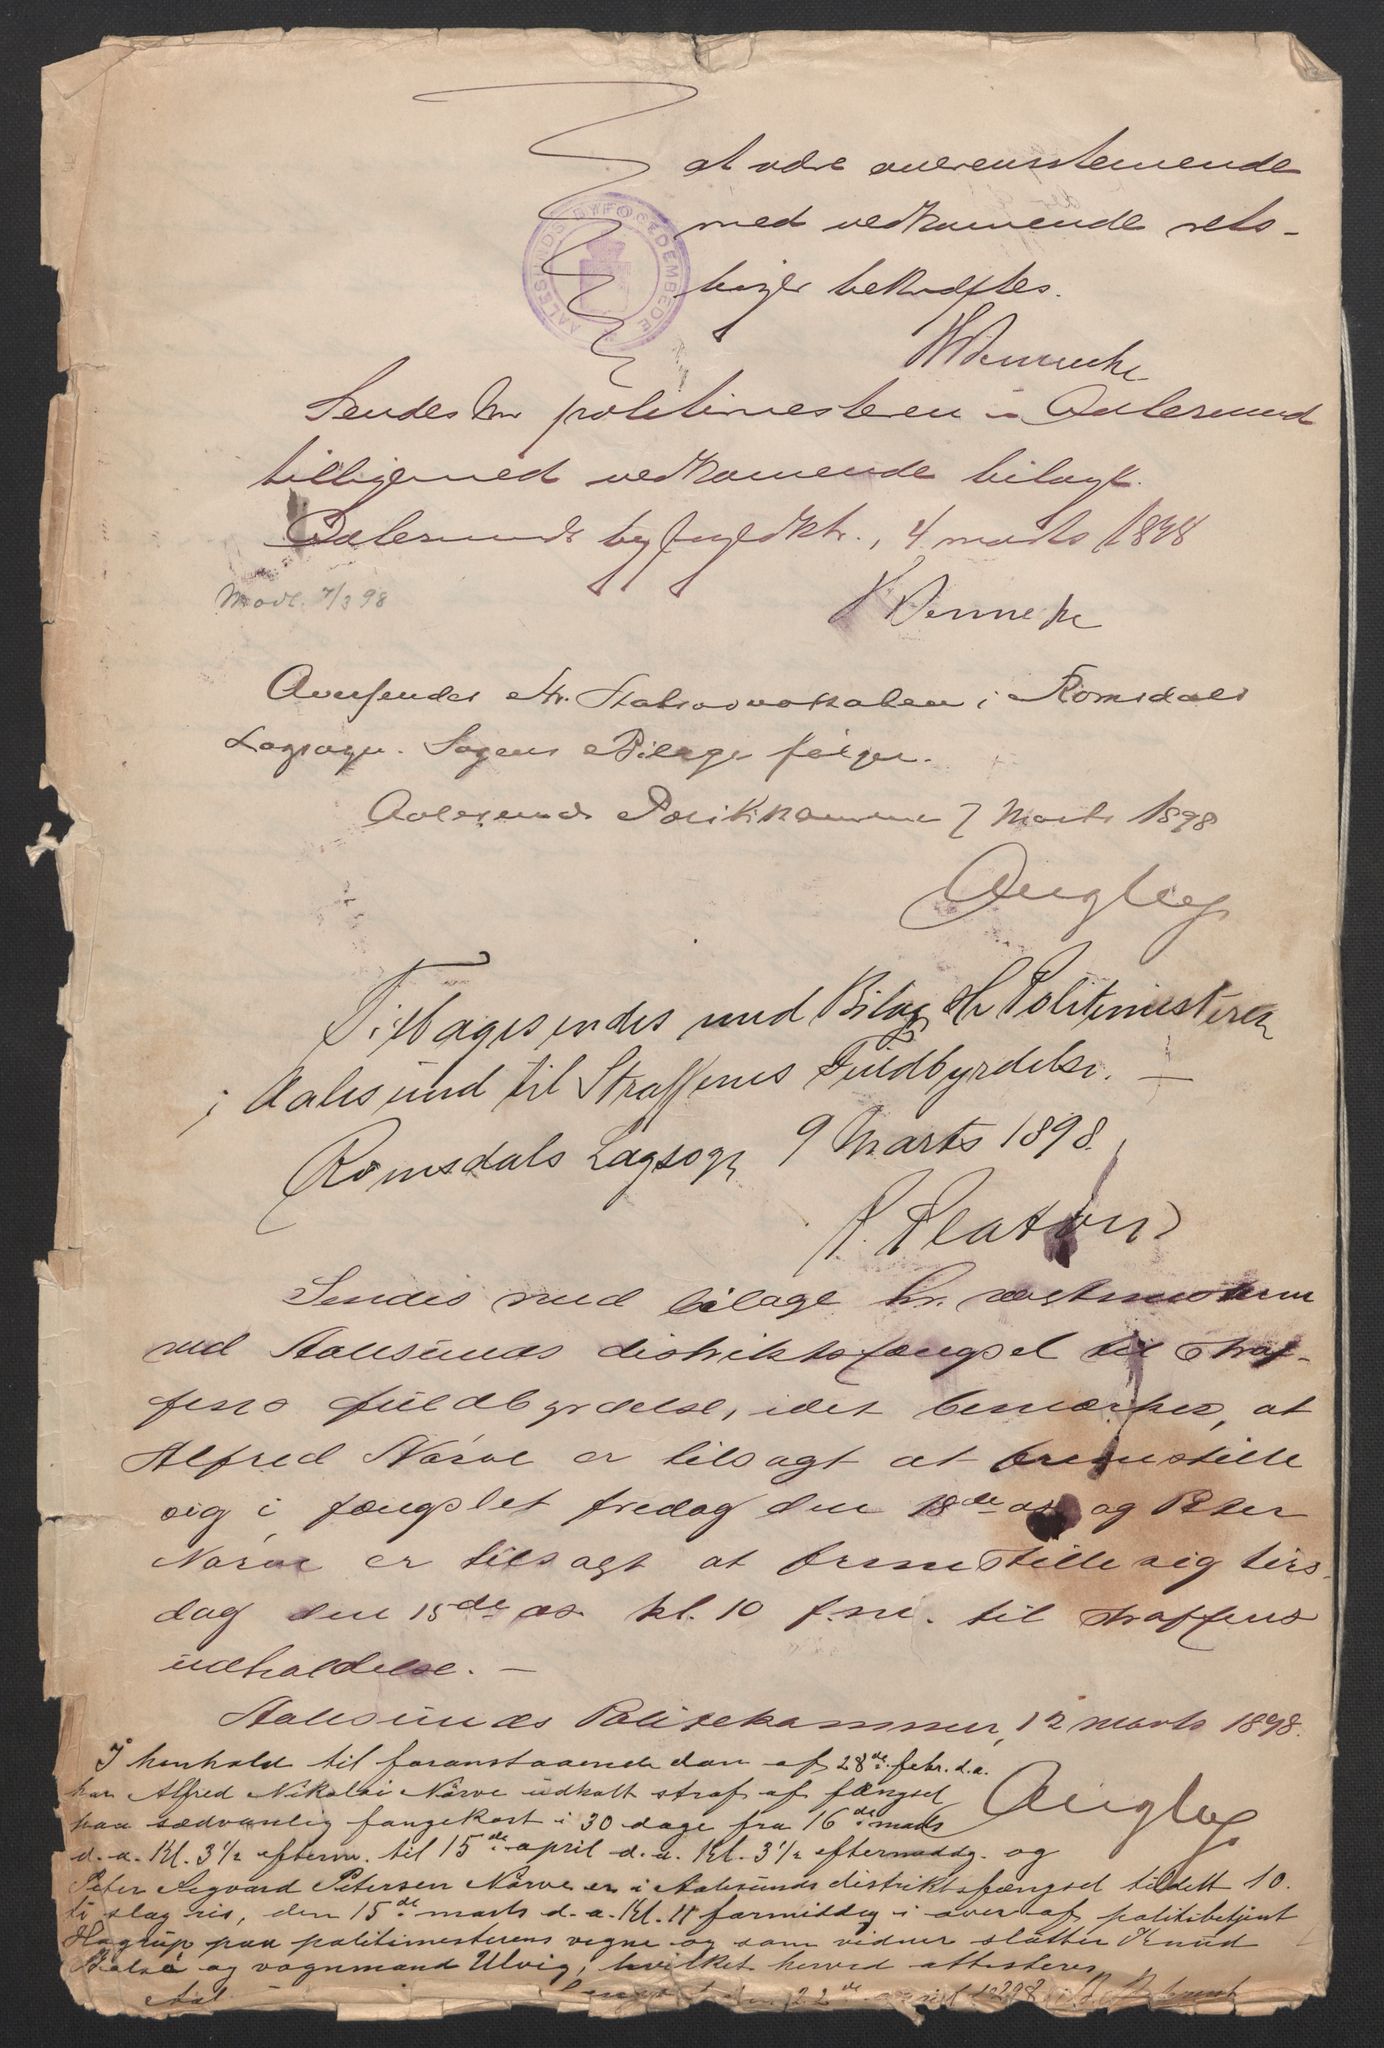 at være overensstemmende
med vedkommende rets-
bøger bekræftes.
AALESUNDS BYFOGEDEMBEDE
Sendes hr politimesteren i Aalesund
tilligemed vedkommende bilage.
Aalesunds byfogedktr., 4 marts 1898
Modt. 7/3 98
Oversendes Hr. Statsadvokaten i Romsdals
Lagsogn. Sagens Bilage følger.
Aalesunds Politikammer 7 Marts 1898
Tilbagesendes med Bilag Hr Politimesteren
i Aalesund til Straffens Fuldbyrdelse. —
Romsdals Lagsogn 9 Marts 1898.
Sendes med bilage hr. vagtmesteren
ved Aalesunds distriktsfængsel til straf-
fens fuldbyrdelse, idet bemærkes, at
Alfred Nørve er tilsagt at fremstille
sig i fængslet fredag den 18de ds. og Peter
Nørve er tilsagt at fremstille sig tirs-
dag den 15de ds. kl. 10 f.m. til straffens
udholdelse. —
Aalesunds Politikammer, 12 marts 1898.
I henhold til foranstaaende dom af 28de febr. d.a.
har Alfred Nikolai Nørve udholt straf af fængsel
paa sædvanlig fangekost i 30 dage fra 16de marts
d.a. Kl. 3½ efterm. til 15de april d.a. Kl. 3½ eftermiddg. og
Peter Sigvard Petersen Nørve er i Aalesunds distriktsfængsel tildelt 10.
ti slag ris, den 15de marts d.a. Kl. 11 formiddg i overvær af politibetjent
Hagrup paa politimesterens vegne og som vidner slatter Knud
og vognmand Ulvig, hvilket herved attesteres
Aal den 22de april 1898